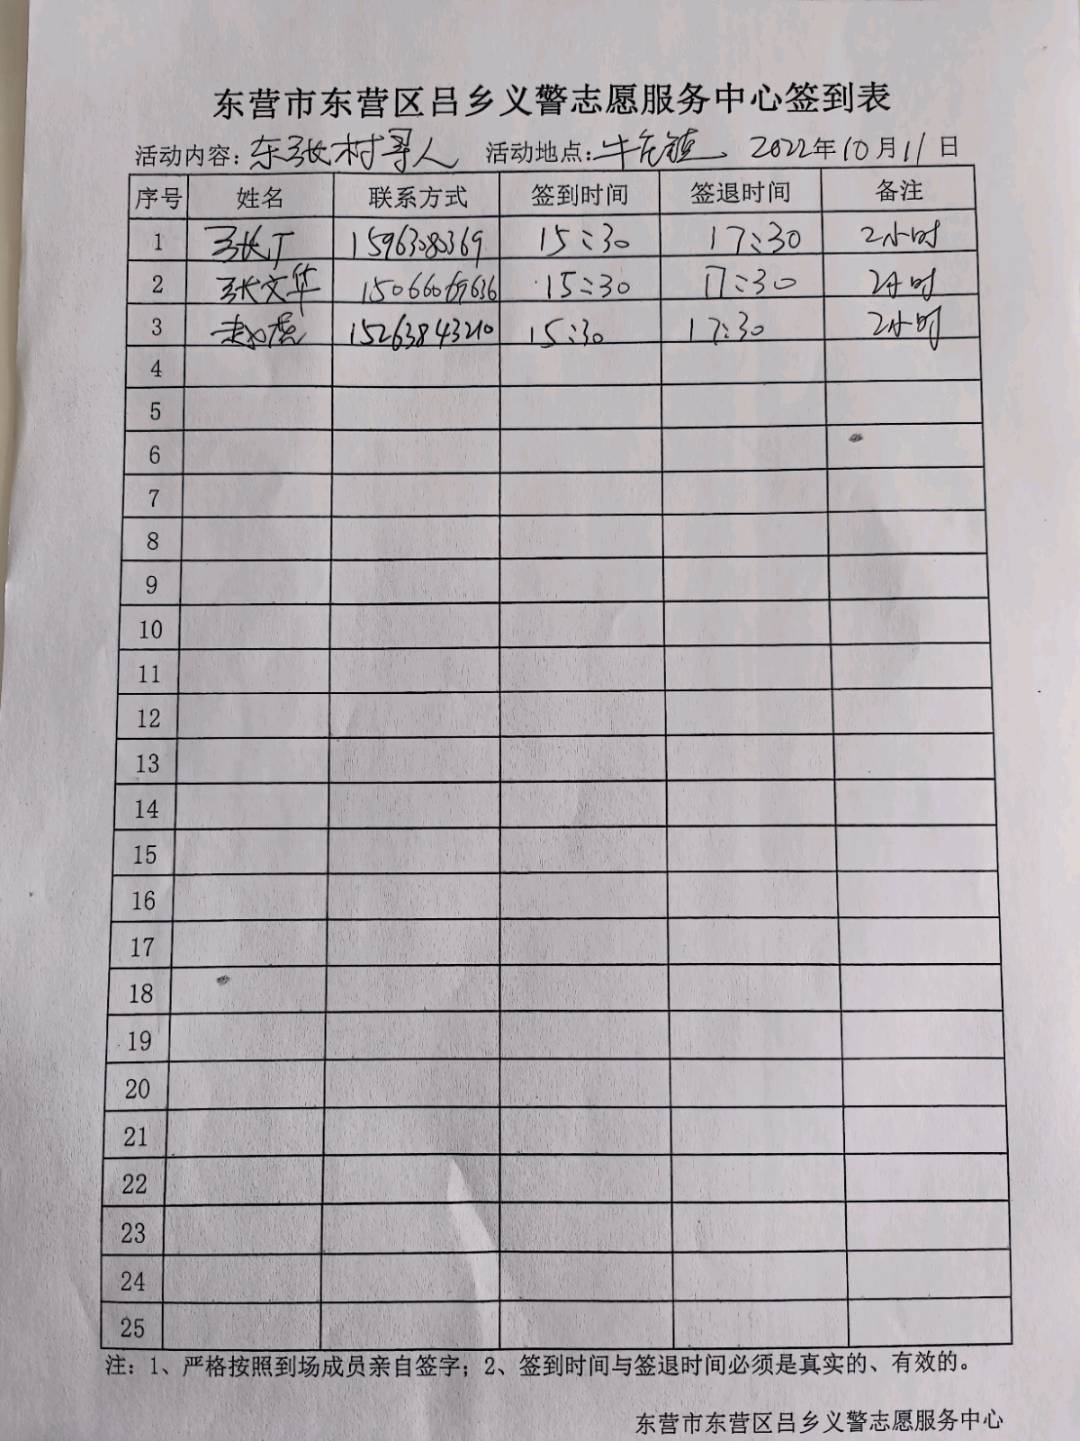 东营市东营区吕乡义警志愿服务中心签到表
活动内容：东张村寻人 活动地点：牛庄镇 2022年10月11日
序号 姓名 联系方式 签到时间 签退时间 备注
1 张广 15963080369 15:30 17:30 2小时
2 张文华 15:30 17:30 2小时
3 15263843210 15:30 17:30 2小时
4
5
6
7
8
9
10
11
12
13
14
15
16
17
18
19
20
21
22
23
24
25
注：1、严格按照到场成员亲自签字；2、签到时间与签退时间必须是真实的、有效的。
东营市东营区吕乡义警志愿服务中心